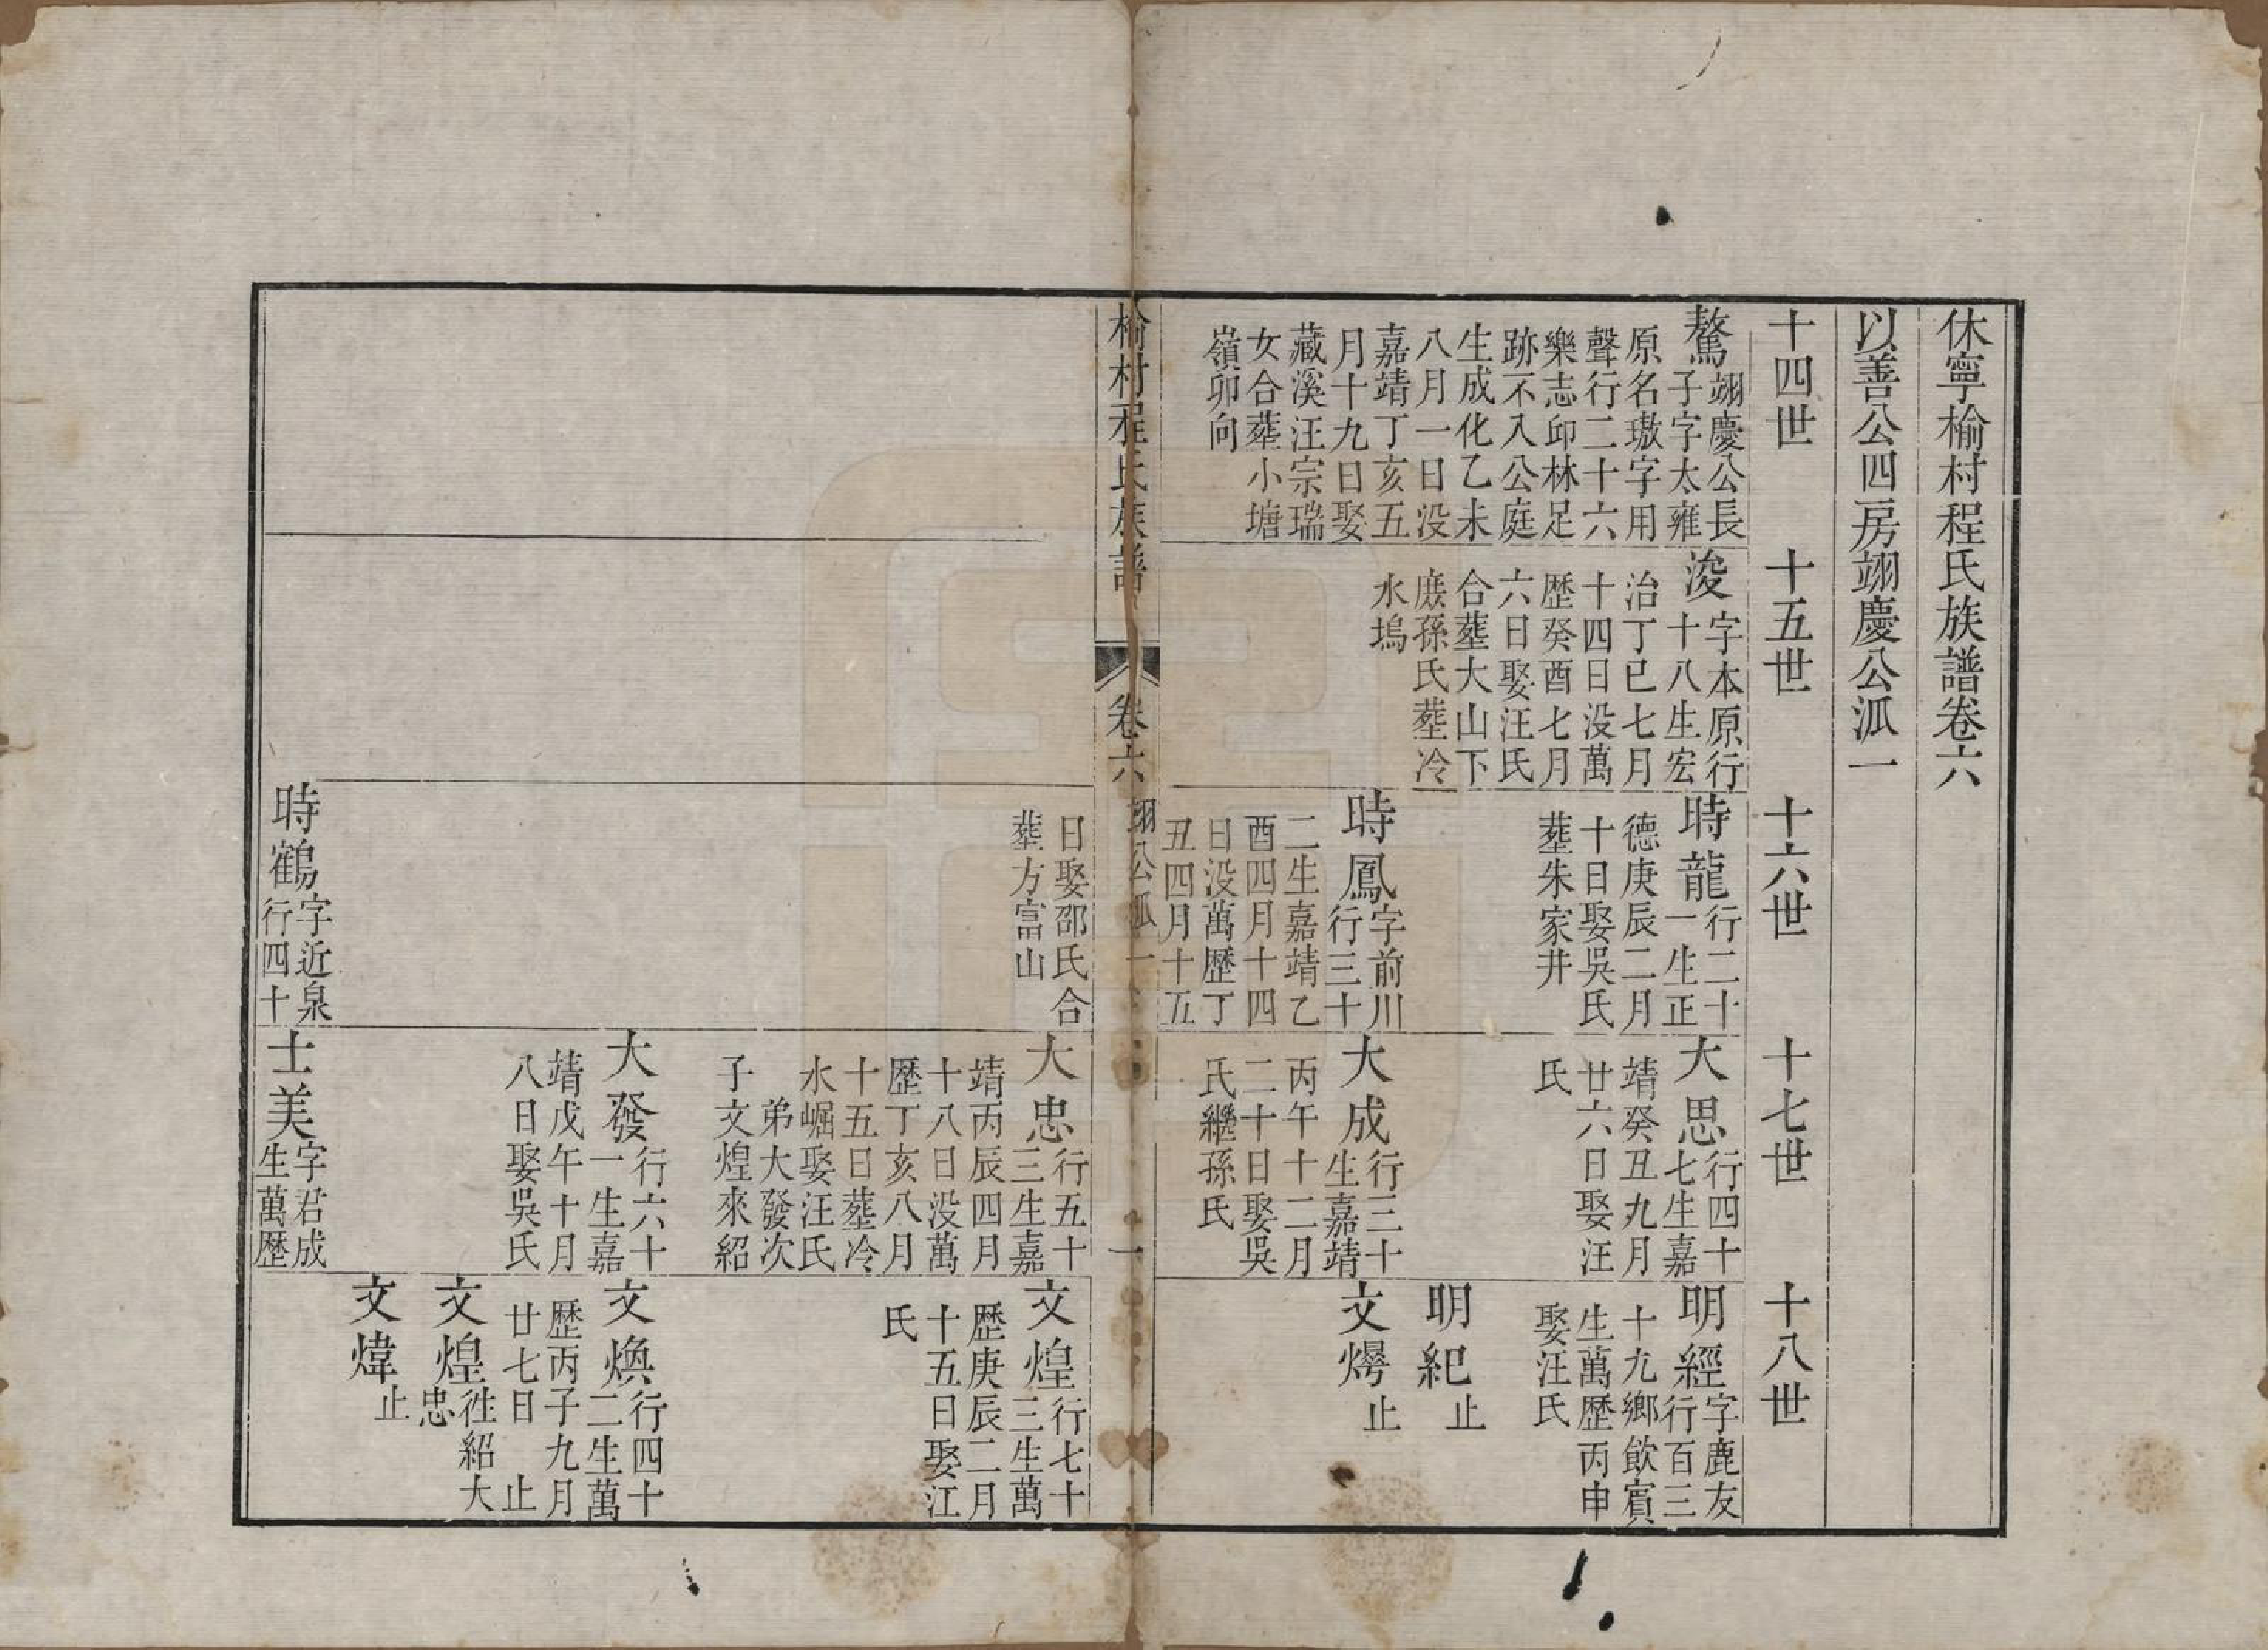 休寧榆村程氏族譜卷六
以善公四房翊慶公派一
十四世
十五世
十六世
十七世
十八世
驁
翊慶公長
子字太雍
原名璈字用
聲行二十六
樂志邱林足
跡不入公庭
生成化乙未
八月一日没
嘉靖丁亥五
月十九日娶
藏溪汪宗瑞
女合塟小塘
嶺卯向
浚
字本原行
十八生宏
治丁巳七月
十四日没萬
歷癸酉七月
六日娶汪氏
合塟大山下
庻孫氏塟冷
水塢
時龍
行二十
一生正
德庚辰二月
十日娶吳氏
塟朱家井
時鳳
字前川
行三十
二生嘉靖乙
酉四月十四
日没萬歷丁
丑四月十五
大思
行四十
七生嘉
靖癸丑九月
廿六日娶汪
氏
大成
行三十
生嘉靖
丙午十二月
二十日娶吳
氏繼孫氏
明經
字鹿友
行百三
十九鄉飲賓
生萬歷丙申
娶汪氏
明紀
止
文燽
止
榆村程氏族譜
卷六
翊公派一
一
日娶邵氏合
塟方富山
時鶴
字近泉
行四十
大忠
行五十
三生嘉
靖丙辰四月
十八日没萬
歷丁亥八月
十五日塟冷
水崛娶汪氏
弟大發次
子文煌來紹
大發
行六十
一生嘉
靖戊午十月
八日娶吳氏
士美
字君成
生萬歷
文煌
行七十
三生萬
歷庚辰二月
十五日娶江
氏
文煥
行四十
二生萬
歷丙子九月
廿七日 止
文煌
徃紹大
忠
文煒
止